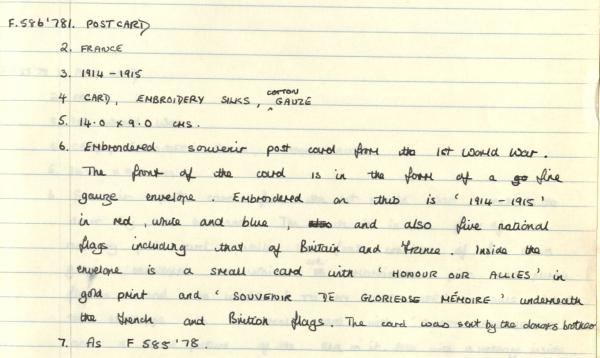 F.586'78 1. POSTCARD
2. FRANCE
3. 1914-1915
4 CARD, EMBROIDERY SILKS, COTTON GAUZE
5. 14.0 x 9.0 CMS.
6. Embroidered souvenir post card from the 1st World War.
The front of the card is in the form of a fine
gauze envelope. Embroidered on this is '1914-1915'
in red, white and blue, and also five national
flags including that of Britain and France. Inside the
envelope is a small card with 'HONOUR OUR ALLIES' in
gold print and 'SOUVENIR DE GLORIEOSE MÉMOIRE' underneath
the French and British flags. The card was sent by the donors brother
7. As F 585'78.